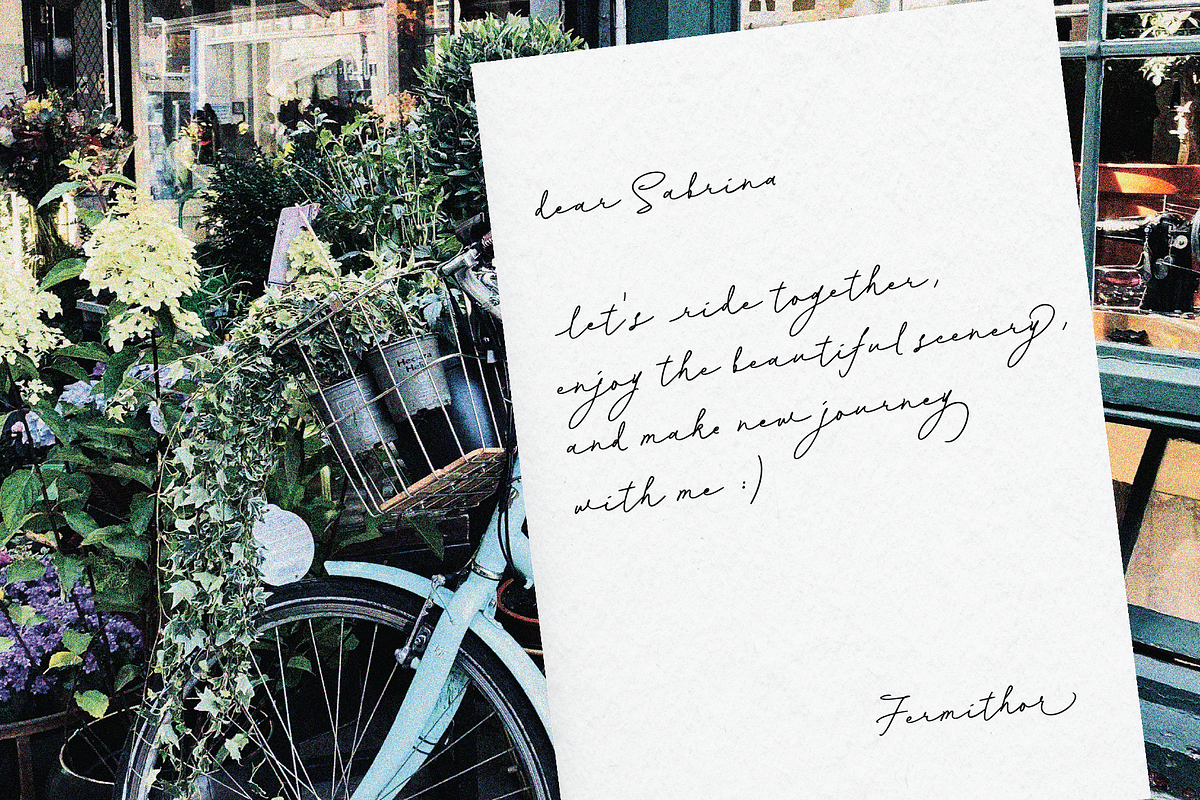 dear Sabrina
let's ride together,
enjoy the beautiful scenery,
and make new journey
with me :)
Fermithor